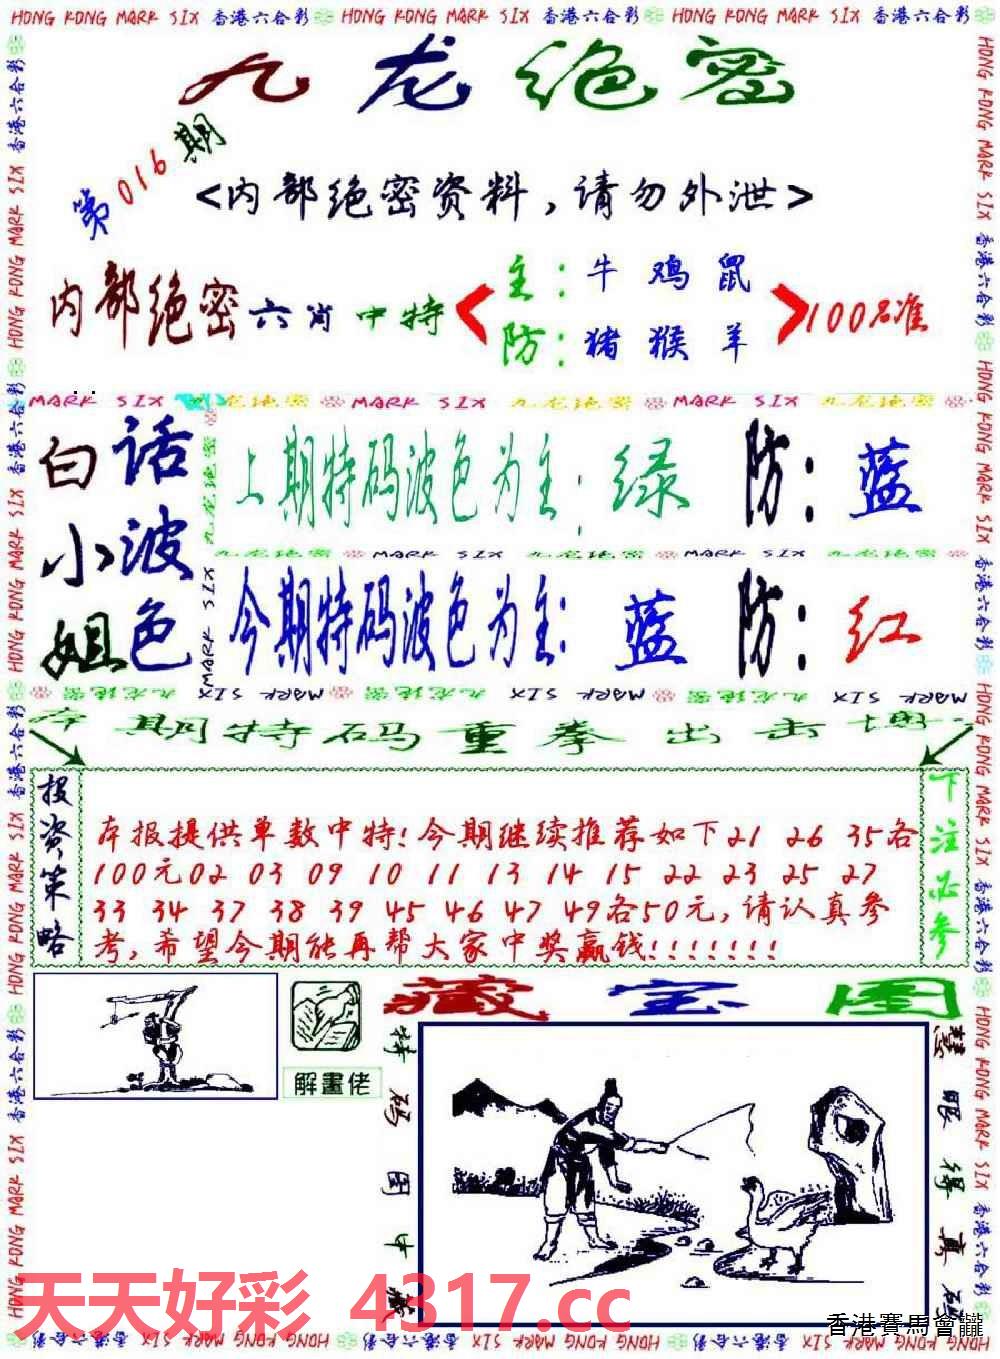 HONG KONG MARK SIX 香港六合彩 HONG KONG MARK SIX 香港六合彩 HONG KONG MARK SIX 香港六合彩
九龙绝密
第016期
<内部绝密资料,请勿外泄>
内部绝密六肖中特
主:牛 鸡 鼠
防:猪 猴 羊
100%准
MARK SIX 九龙绝密 MARK SIX 九龙绝密 MARK SIX 九龙绝密
白小姐
话波色
上期特码波色为主:绿 防:蓝
九龙绝密 MARK SIX 九龙绝密 MARK SIX 九龙绝密
今期特码波色为主:蓝 防:红
本期特码重拳出击
投资策略
本报提供单数中特!今期继续推荐如下21 26 35各
100元02 03 09 10 11 13 14 15 22 23 25 27
33 34 37 38 39 45 46 47 49各50元,请认真参
考,希望今期能再帮大家中奖赢钱!!!!!!!
下注必参
解畫佬
藏宝图
特码图中藏
慧眼得真码
天天好彩 4317.cc
香港賽馬會龖